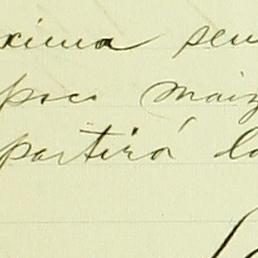 xima sem
poco maiz
partirá la